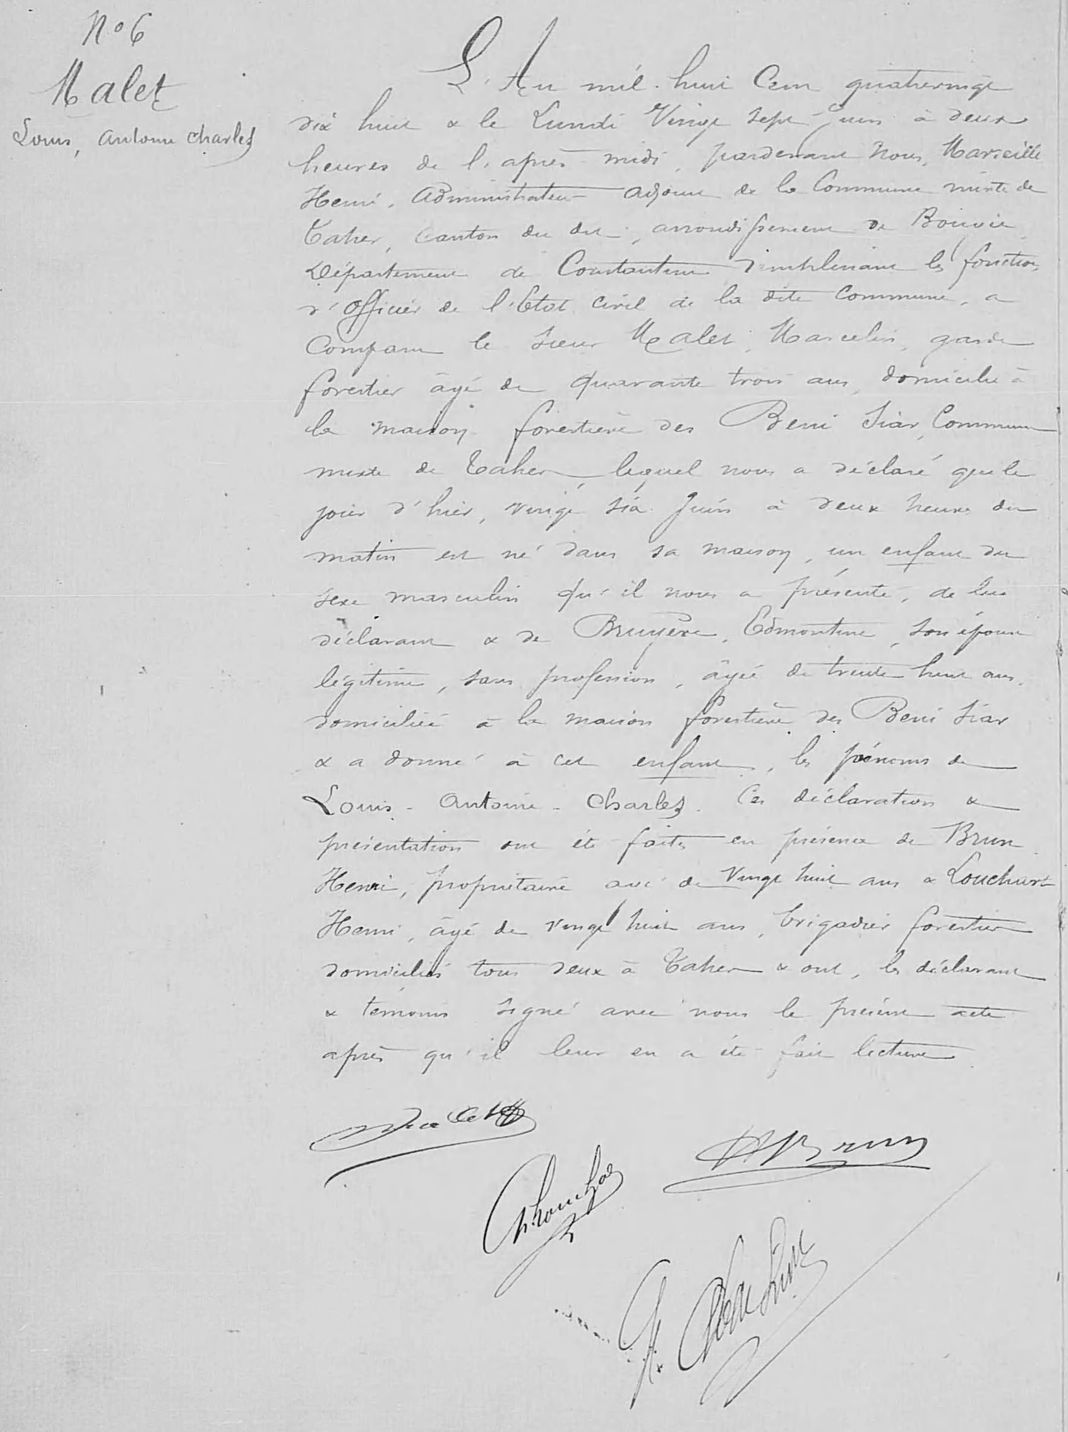 N° 6
Malet
Louis, Antoine Charles
L'An mil huit Cent quatrevingt
dix huit & le Lundi Vingt sept Juin à deux
heures de l'après-midi, pardevant Nous, Marseille
Henri, Administrateur adjoint de la Commune mixte de
Taher, Canton du dit, arrondissement de Bougie
Département de Constantine remplissant les fonctions
d'officier de l'Etat civil de la dite Commune, a
Comparu le sieur Malet, Marcelin, garde
forestier âgé de quarante trois ans, domicilié à
la maison forestière des Beni Siar, Commune
mixte de Taher lequel nous a déclaré que le
jour d'hier, vingt six Juin à deux heures du
matin est né dans sa maison, un enfant du
sexe masculin qu'il nous a présenté, de lui
déclarant & de Bruyère, Edmontine, son épouse
légitime, sans profession, âgée de trente huit ans,
domiciliée à la maison forestière des Beni Siar
& a donné à cet enfant, les prénoms de
Louis - Antoine - Charles. Ces déclaration &
présentation ont été faites en présence de Brun
Henri, propriétaire agé de Vingt huit ans & Louchart
Henri, âgé de vingt huit ans, brigadier forestier
domiciliés tous deux à Taher & ont, les déclarant
& témoins signé avec nous le présent acte
après qu'il leur en a été fait lecture
Malet
HBrun